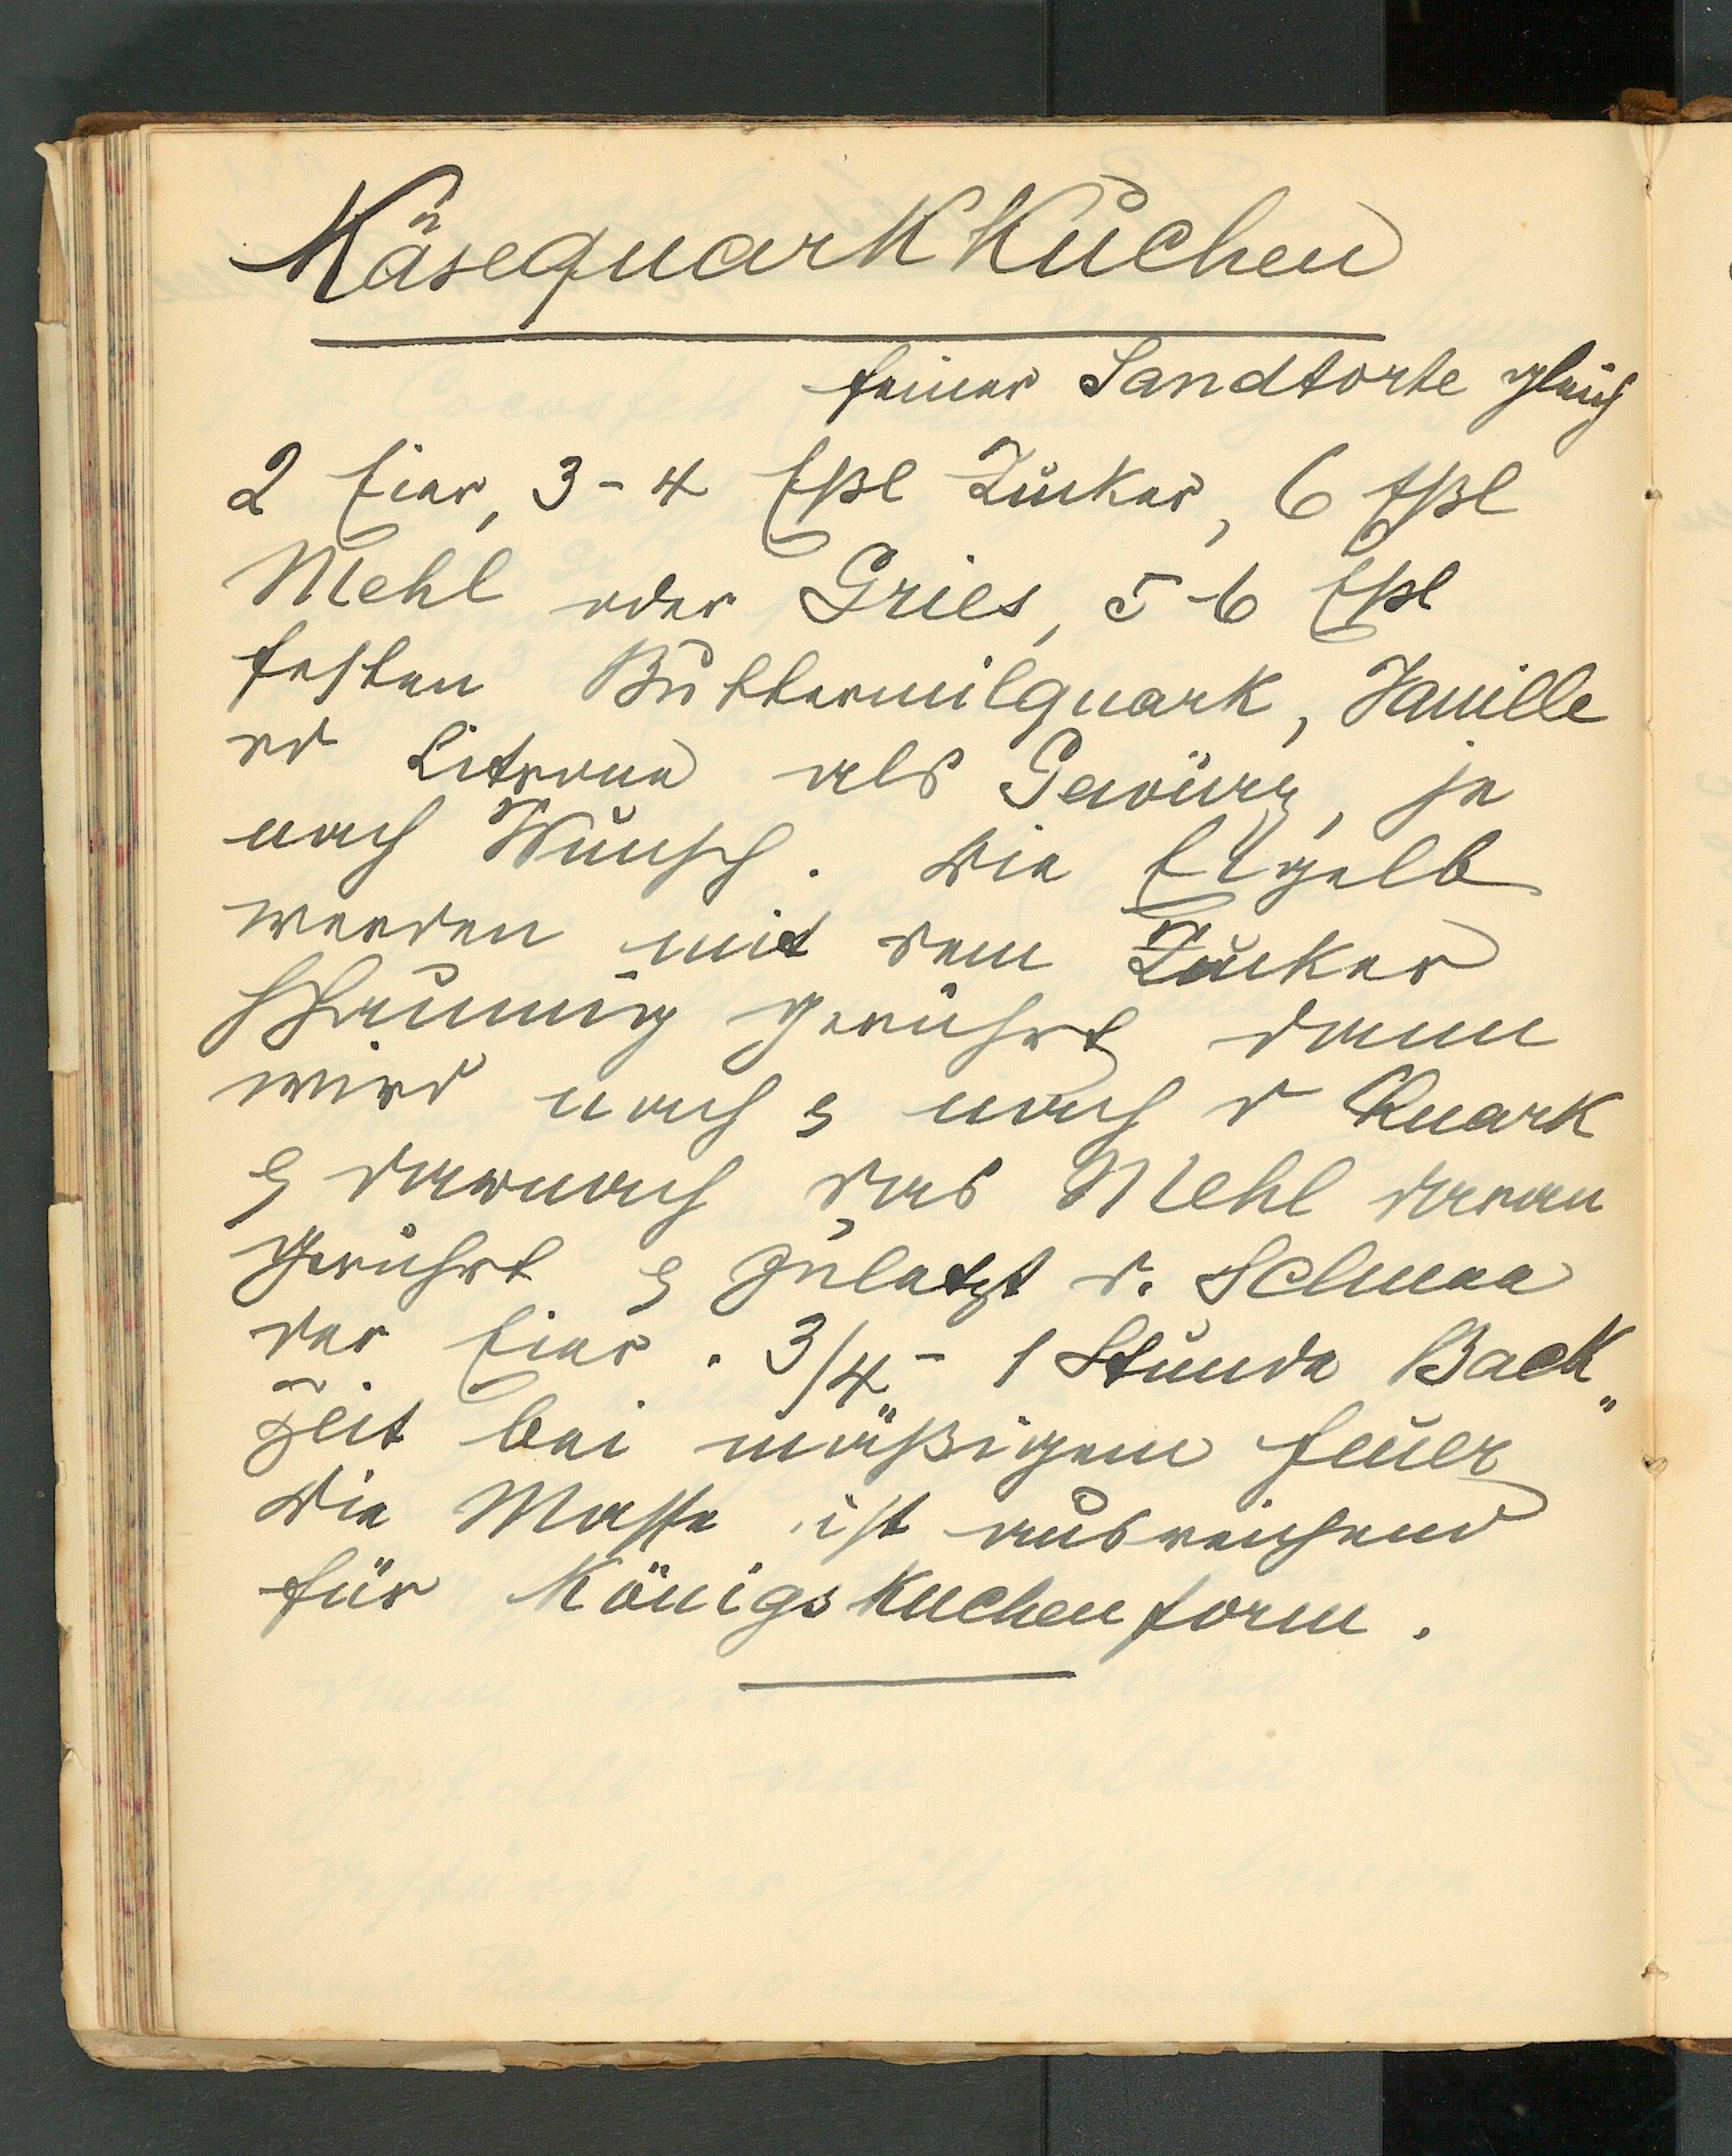 Käsequarkkuchen
feiner Sandtorte gleich
2 Eier, 3-4 Eßl Zucker, 6 Eßl
Mehl oder Gries, 5-6 Eßl
festen Buttermilquark, Vanille
od Citrone als Gewürz, je
nach Wunsch. Die Eigelb
werden mit dem Zucker
schaumig gerührt dann
wird nach & nach d Quark
& darnach das Mehl daran
gerührt & zuletzt d. Schnee
der Eier. 3/4 - 1 Stunde Back„
zeit bei mäßigem Feuer
Die Masse ist ausreichend
für Königskuchenform.